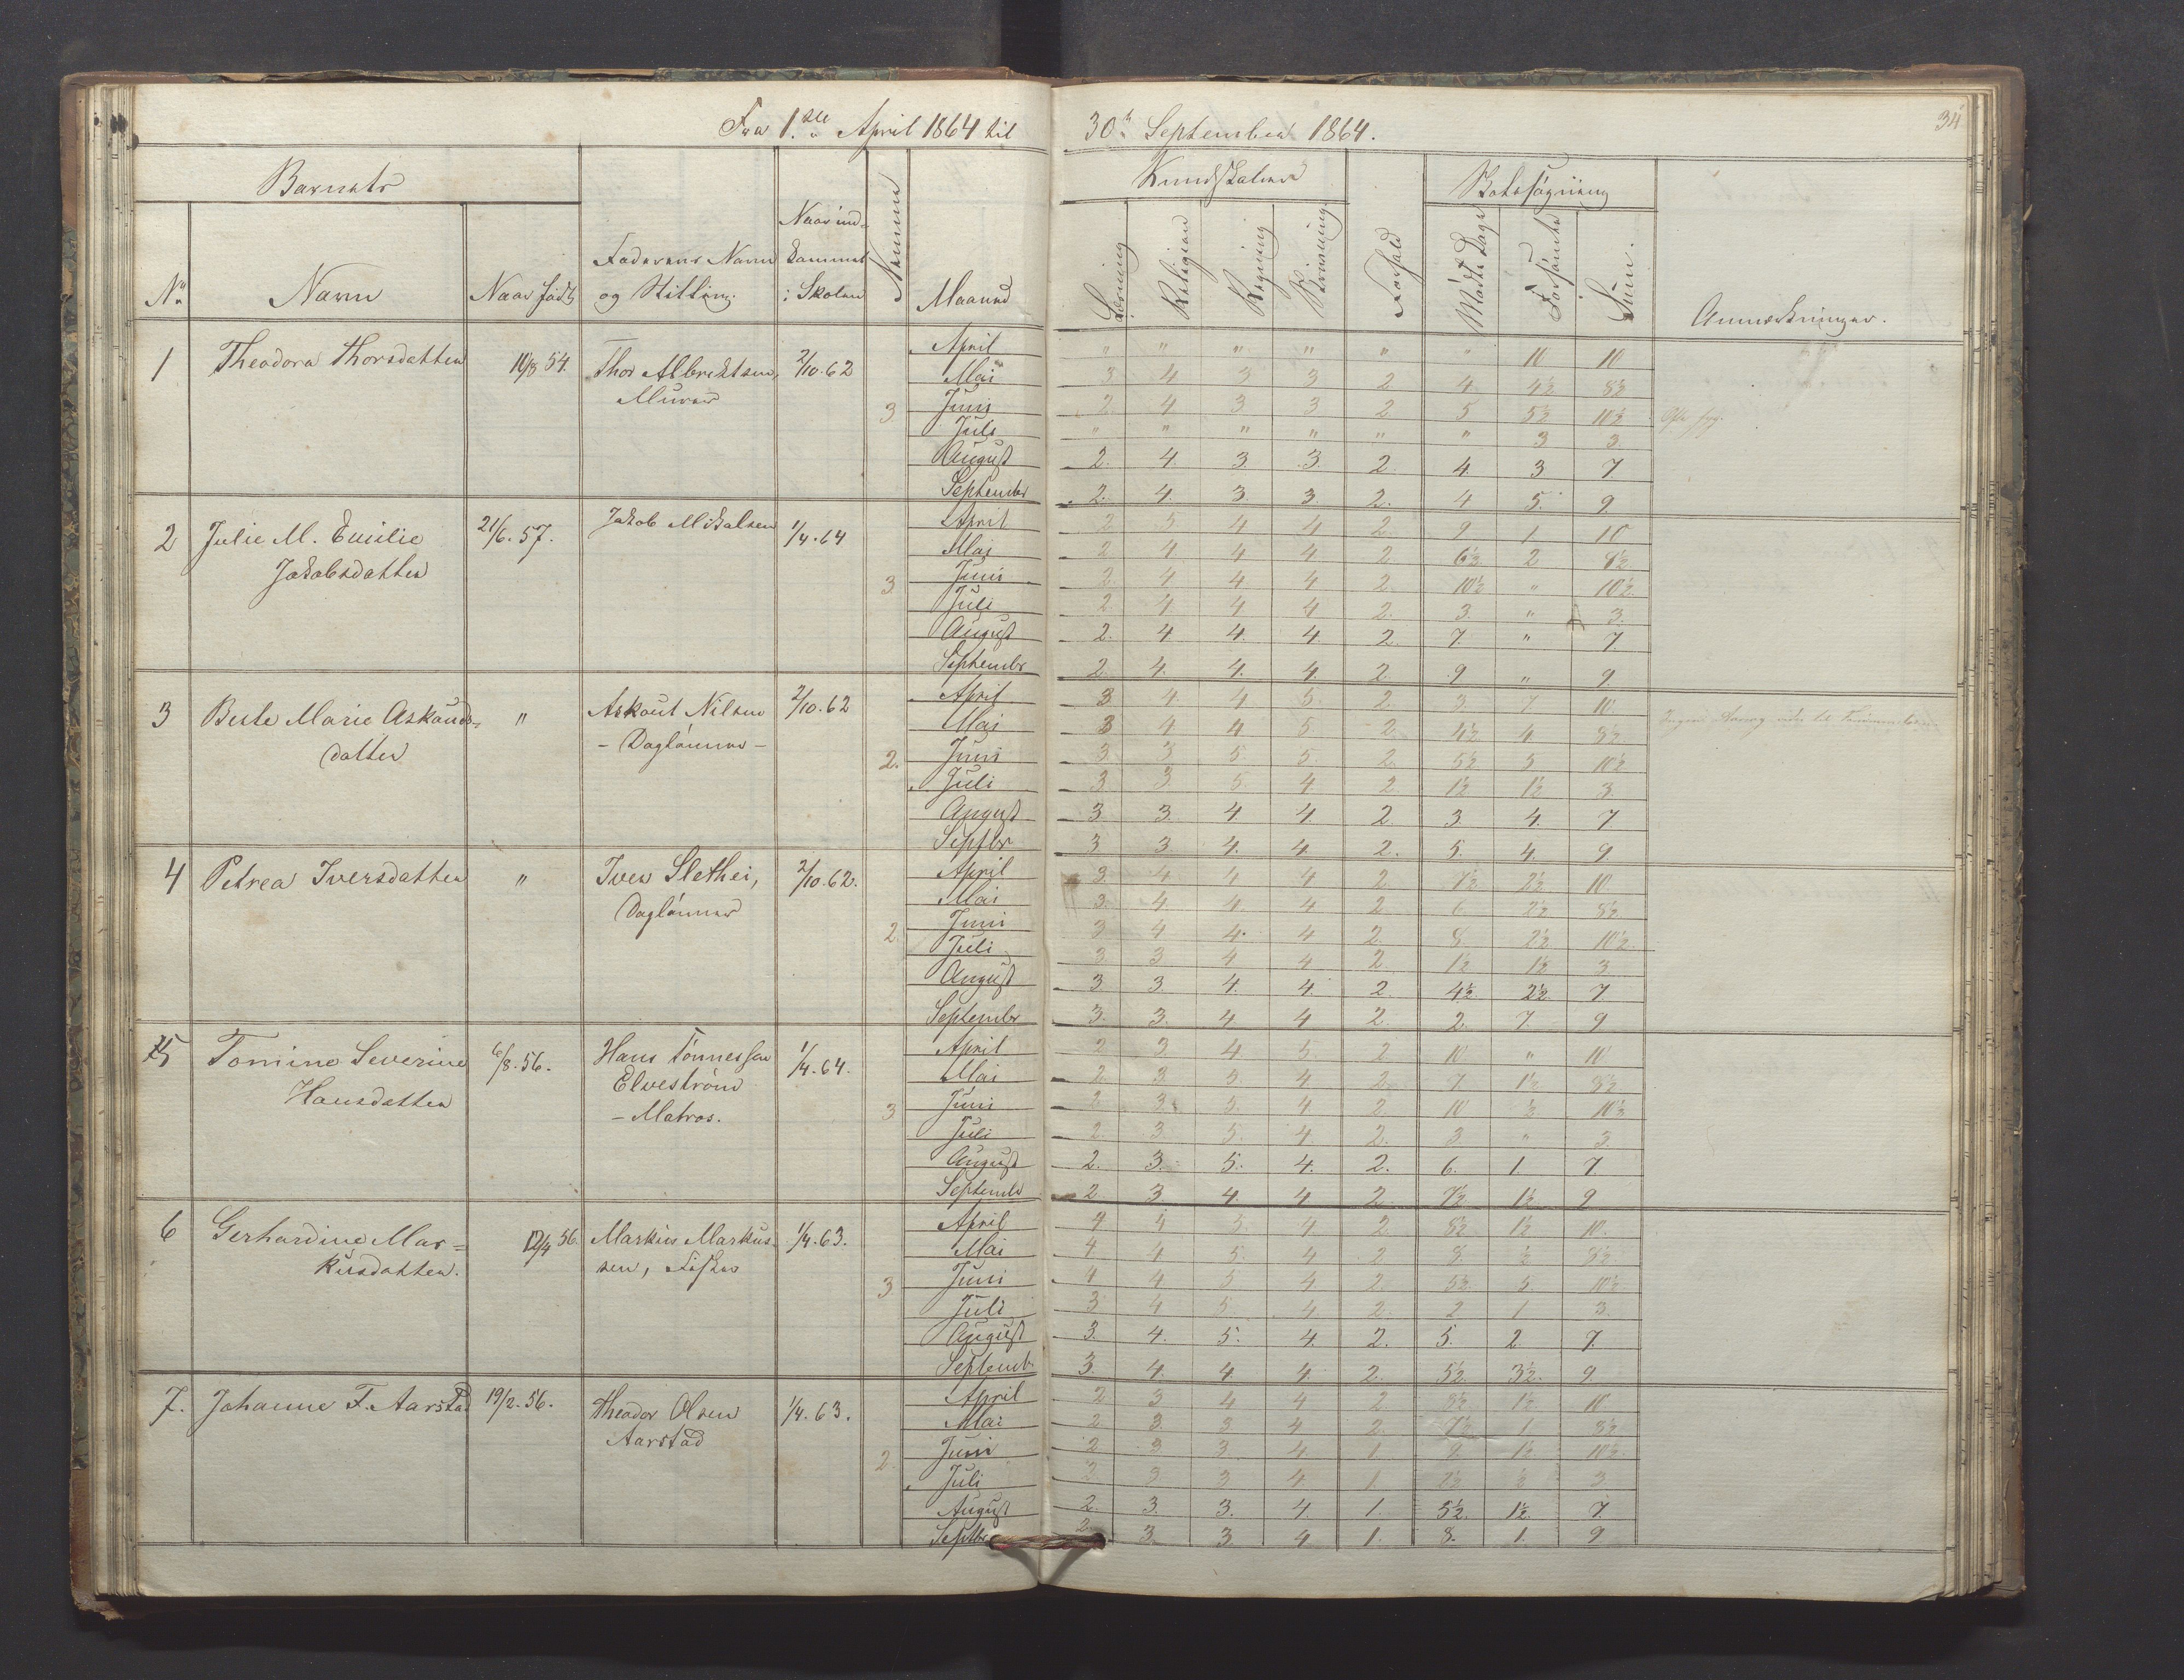 Fra 1.ste April 1864 til 30te September 1864.
34
Barnets
Kundskaber
Skolesøgning
No Navn Naar født Faderens Navn og Stilling. Naar indkommet i Skolen Nummer Maaned Læsning Religion Regning Skrivning Forhold Mødte Dage Forsømte Sum. Anmærkninger.
1 Theodora Thorsdatter 10/8 54. Thor Albrektsen, Murer 2/10.62 3
April " " " " " " 10 10
Mai 3 4 3 3 2 4 4½ 8½
Juni 2 4 3 3 2 5 5½ 10½
Juli " " " " " " 3 3.
August 2. 4. 3. 3. 2 4. 3 7.
September 2. 4. 3. 3. 2. 4 5. 9
2 Julie M. Emilie Jakobsdatter 21/6. 57. Jakob Mikalsen 1/4.64 3.
April 2 5 4 4 2 9 1 10
Mai 2 4 4 4 2 6½ 2 8½
Juni 2 4 4 4 2. 10½ " 10½
Juli 2. 4 4 4 2. 3. " 3.
August 2. 4. 4. 4. 2 7. " 7
Septembr 2. 4. 4. 4. 2. 9 " 9
3 Berte Marie Askouds= datter " Askout Nilsen - Daglønner - 2/10.62 2.
April 3 4 4 5 2 3 7 10
Mai 3 4 4 5 2 4½ 4 8½
Juni 3. 3 5 5. 2. 5½ 5 10½
Juli 3 3. 5. 4 2 1½ 1½ 3.
August 3. 3. 4 4. 2. 3. 4. 7
Septbr 3 3 4. 4. 2. 5. 4. 9
4 Petrea Iversdatter " Iver Slethei, Daglønner 2/10.62. 2.
April 3. 4 4 4 2. 7½ 2½ 10
Mai 3. 4. 4. 4 2 6 2½ 8½
Juni 3 4 4. 4 2. 8. 2½ 10½
Juli 3. 3 4 4 2 1½ 1½ 3
August 3 3. 4. 4. 2. 4½ 2½ 7
Septembr 3. 3. 4. 4 2. 2. 7. 9
5 Tomine Severine Hansdatter 6/8.56. Hans Tönnessen Elveström - Matros. 1/4.64. 3.
April 2 3 4 5 2 10 " 10
Mai 2. 3 5. 4 2. 7 1½ 8½
Juni 2 3. 5. 4 2. 10 ½ 10½
Juli 2. 3. 5. 4 2. 3 " 3.
August 2. 3. 5. 4. 2. 6. 1 7.
Septembr 2 3. 4. 4 2 7½ 1½ 9
6 Gerhardine Mar= kusdatter. 12/4 56. Markus Markussen, Fisker 1/4.63. 3.
April 4 4 5. 4 2 8½ 1½ 10.
Mai 4 4 5. 4 2 8. ½ 8½
Juni 4 4 5 4 2. 5½ 5. 10½
Juli 3. 4 5. 4. 2. 2 1 3.
August 3. 4. 5. 4. 2. 5. 2. 7.
Septembr 3. 4. 4. 4 2. 5½ 3½. 9
7. Johanne F. Aarstad 19/2.56. Theodor Olsen Aarstad 1/4.63. 2.
April 2 3 4 4 2 8½ 1½ 10
Mai 2 3 3 4 2 7½ 1 8½
Juni 2 3 3. 4 1 9 1½ 10½
Juli 2 3 3 4. 1 2½ ½ 3.
August 2. 3. 3. 4. 1. 5½ 1½. 7
Septbr 2. 3. 3 4 1. 8. 1. 9